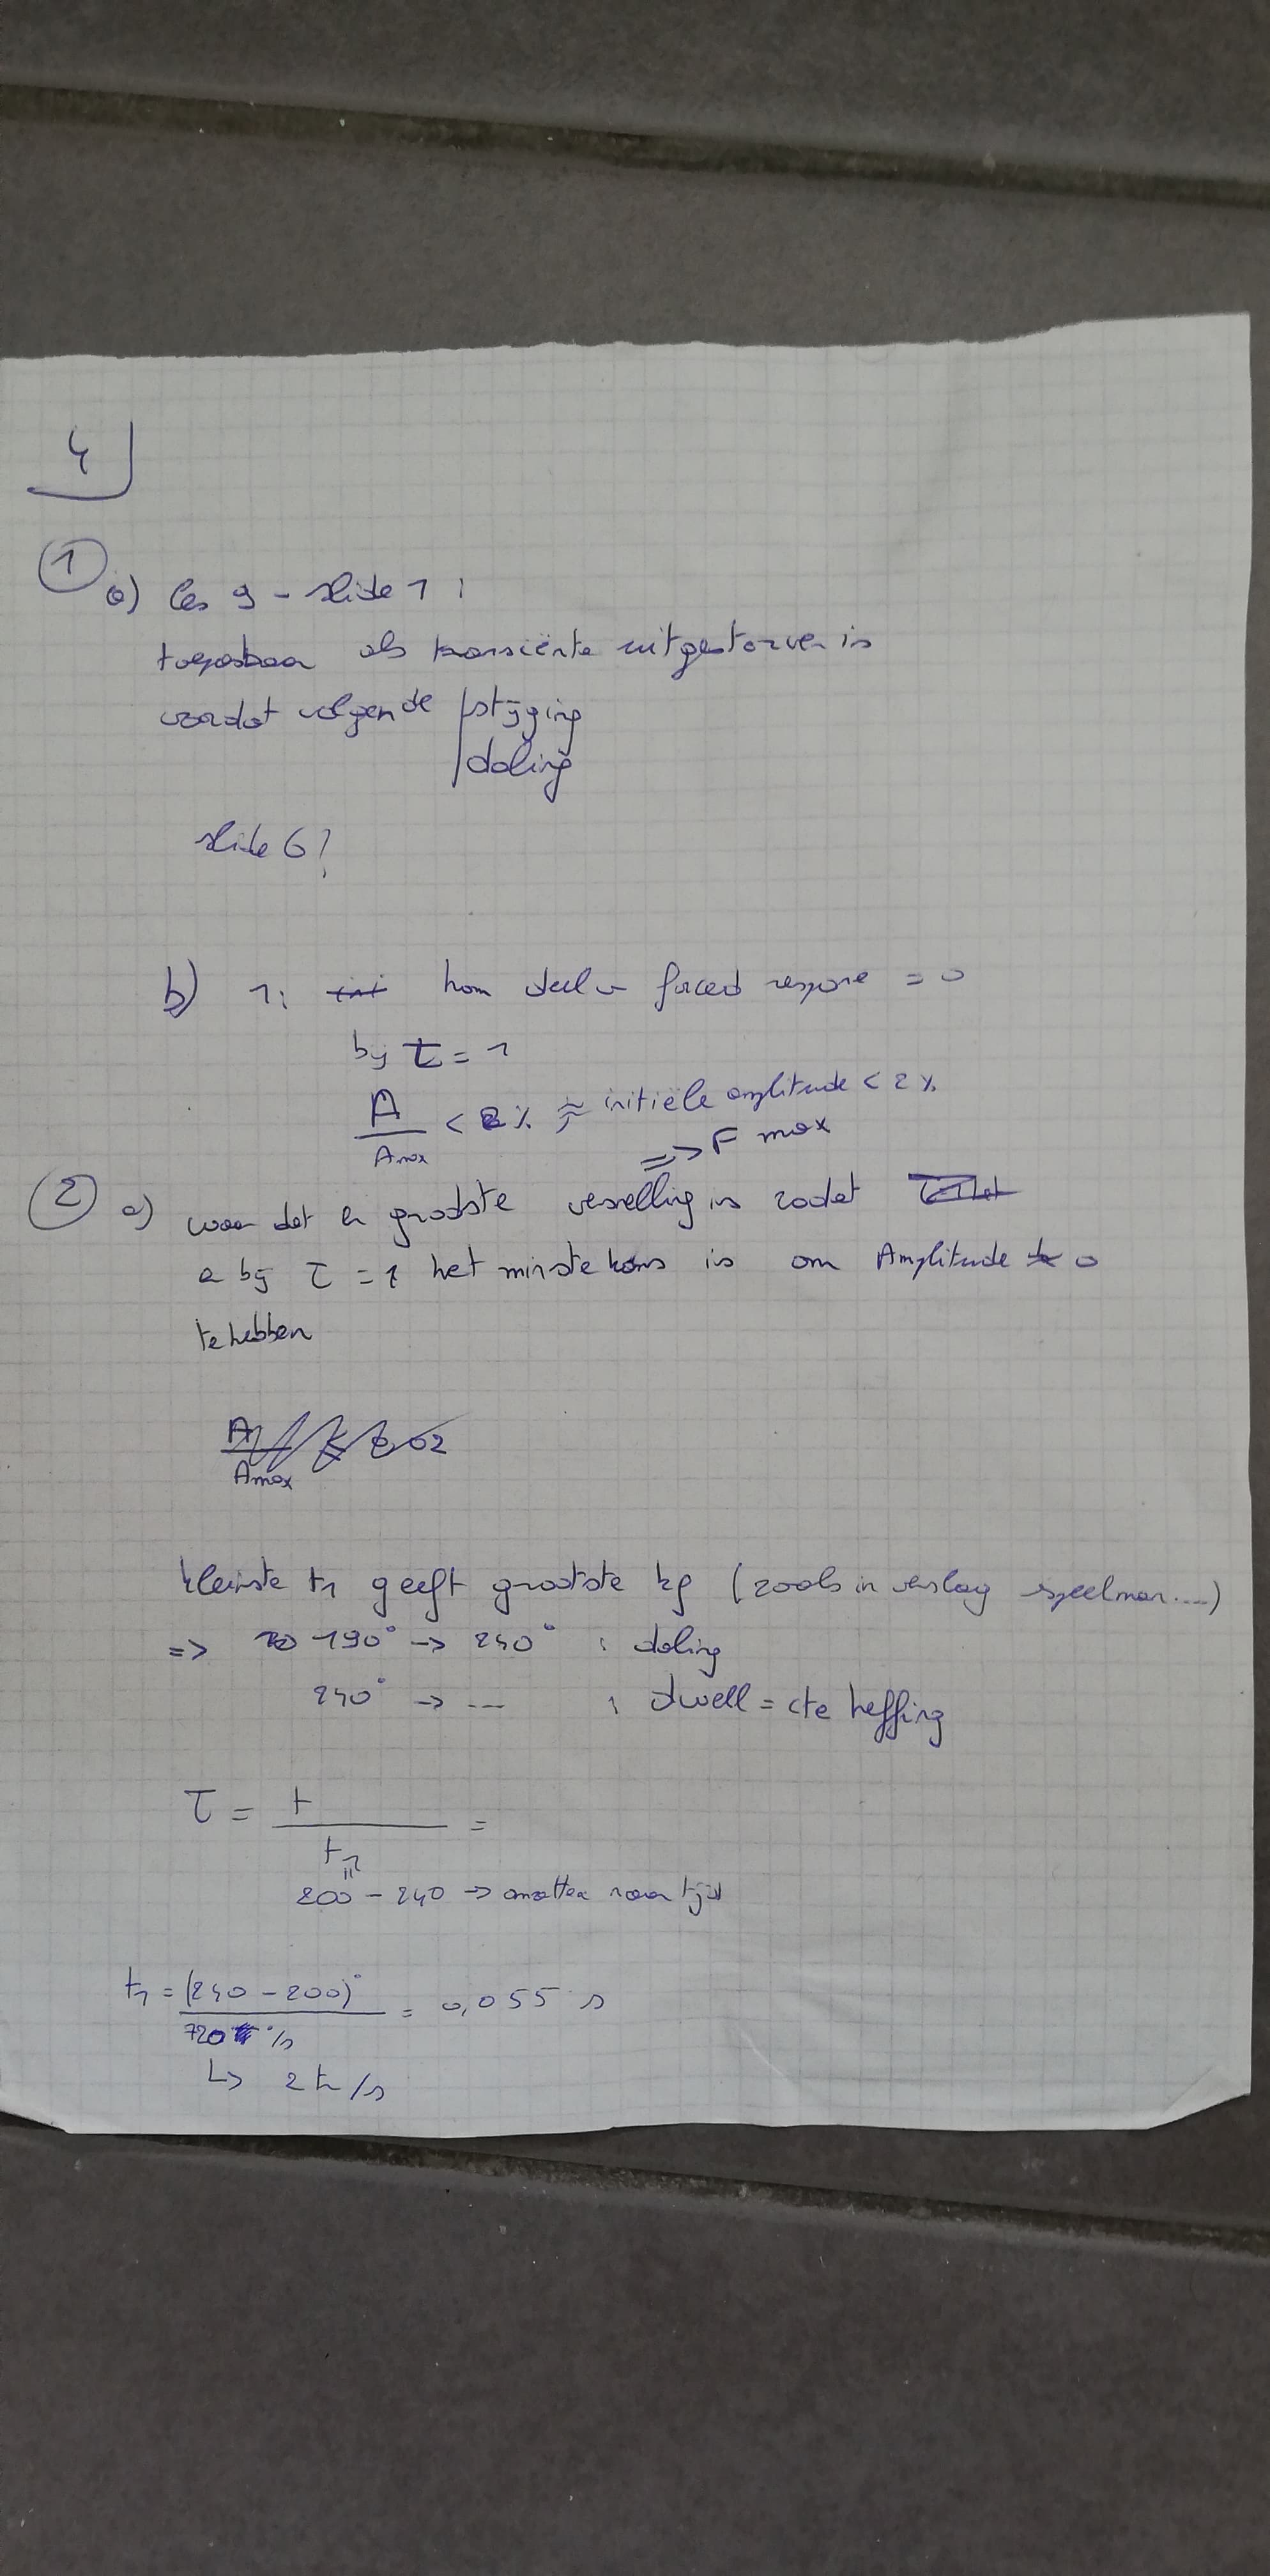 4
① a) les 9 - slide 1:
toepasbaar als transiënte uitgestorven is
voordat volgende stijging
daling
slide 6?
b) 1: hom deel v forced respone = 0
bij τ = 1
A / Amax < 2% ≈ initiële amplitude < 2%
=> F max
② a) waar dat er grootste versnelling is zodat
e bij τ = 1 het minste kans is om Amplitude 0
te hebben
A / Amax 0,02
kleinste t1 geeft grootste kf (zoals in verslag speelman....)
=> 190° -> 240° : daling
240° -> ... : dwell = cte heffing
τ = t / t1 =
200 - 240 -> omzetten naar tijd
t1 = (240 - 200)° / 720 °/s = 0,055 s
↳ 2 tr/s